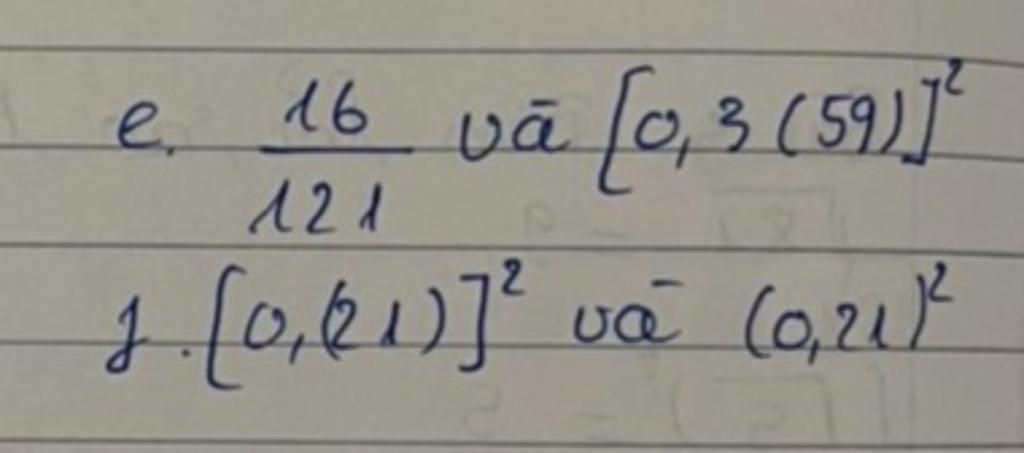 e. 16/121 và [0,3(59)]²
f. [0,(21)]² và (0,21)²